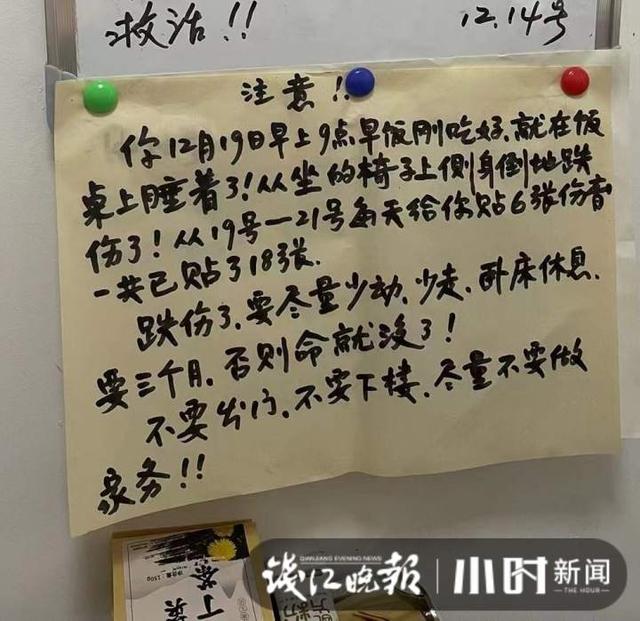 救活!! 12.14号
注意!!
你12月19日早上9点.早饭刚吃好,就在饭
桌上睡着了!从坐的椅子上侧身倒地跌
伤了!从19号—21号每天给你贴6张伤膏
一共已贴了18张.
跌伤了,要尽量少动,少走,卧床休息.
要三个月,否则命就没了!
不要出门,不要下楼,尽量不要做
家务!!
净含量:150g
丁茶
钱江晚报 小时新闻
QIANJIANG EVENING NEWS
THE HOUR